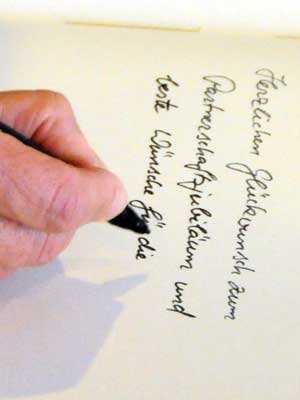 Herzlichen Glückwunsch zum
Partnerschaftsjubiläum und
beste Wünsche für die